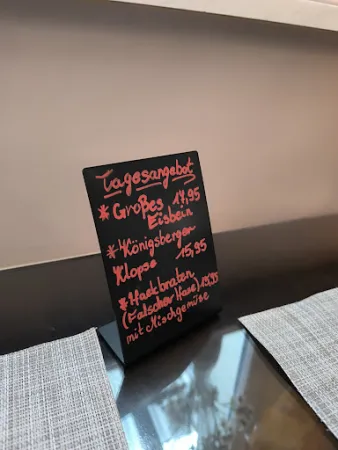 Tagesangebot
* Großes 17,95
Eisbein
* Königsberger
Klopse 15,95
* Hackbraten
(Falscher Hase) 13,95
mit Mischgemüse